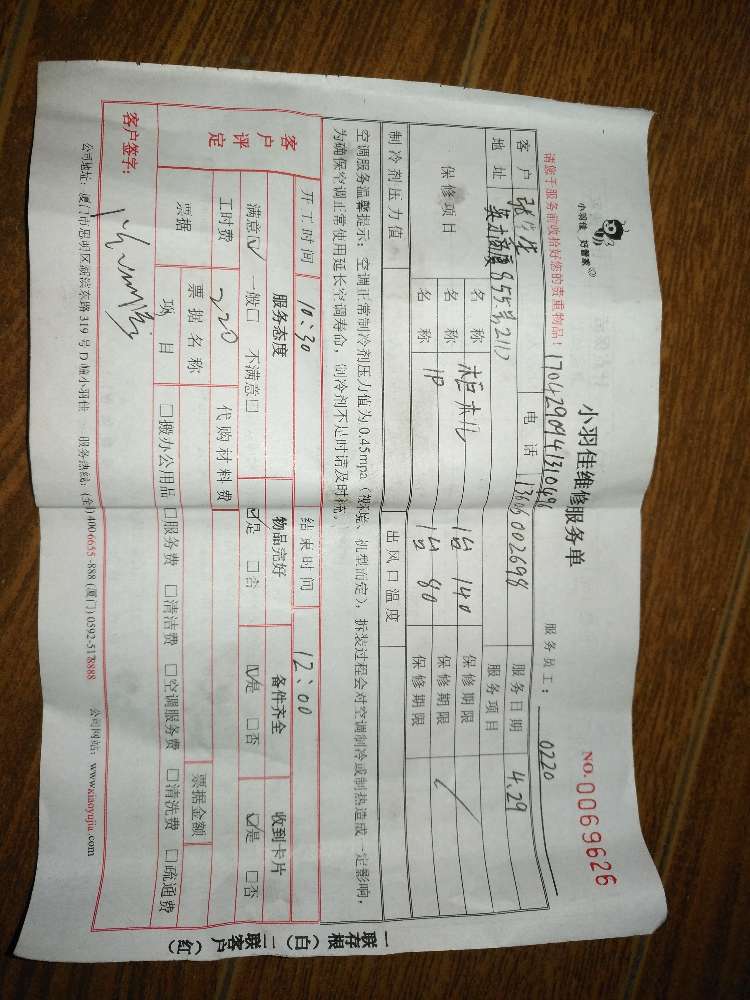 小羽佳 好管家®
小羽佳维修服务单
NO.0069626
服务员工: 0220
请您于服务前收拾好您的贵重物品! 170429094131049
客户 电话 13606002698 服务日期 4.29
地址 855号2110 服务项目
保修项目 名称 柜本儿 1台 140 保修期限
名称 1P 1台 80 保修期限
保修期限
制冷剂压力值 出风口温度
空调服务温馨提示: 空调正常制冷剂压力值为0.45mpa 机型而定), 拆装过程会对空调制冷或制热造成一定影响,
为确保空调正常使用延长空调寿命, 制冷剂不足时请及时
开工时间 10:30 结束时间 12:00
客户评定 服务态度 物品完好 备件齐全 收到卡片
满意☑ 一般□ 不满意□ ☑是 □否 ☑是 □否 ☑是 □否
工时费 220 代购材料费
票据 票据名称 票据金额
项目 □搬办公用品 □服务费 □清洁费 □空调服务费 □清洗费 □疏通费
客户签字:
公司地址: 厦门市思明区湖滨东路319号D幢小羽佳 服务热线: (全)4006655-888 (厦门)0592-5178888 公司网站: www.xiaoyujia.com
一联存根(白)二联客户(红)